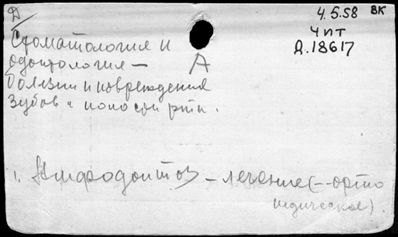 Д
4.5.58 ВК
Стоматология и
Чит
Д.18617
одонтология —
А
болезни и повреждения
зубов и полости рта.
1. — лечение (–орто
педическое).